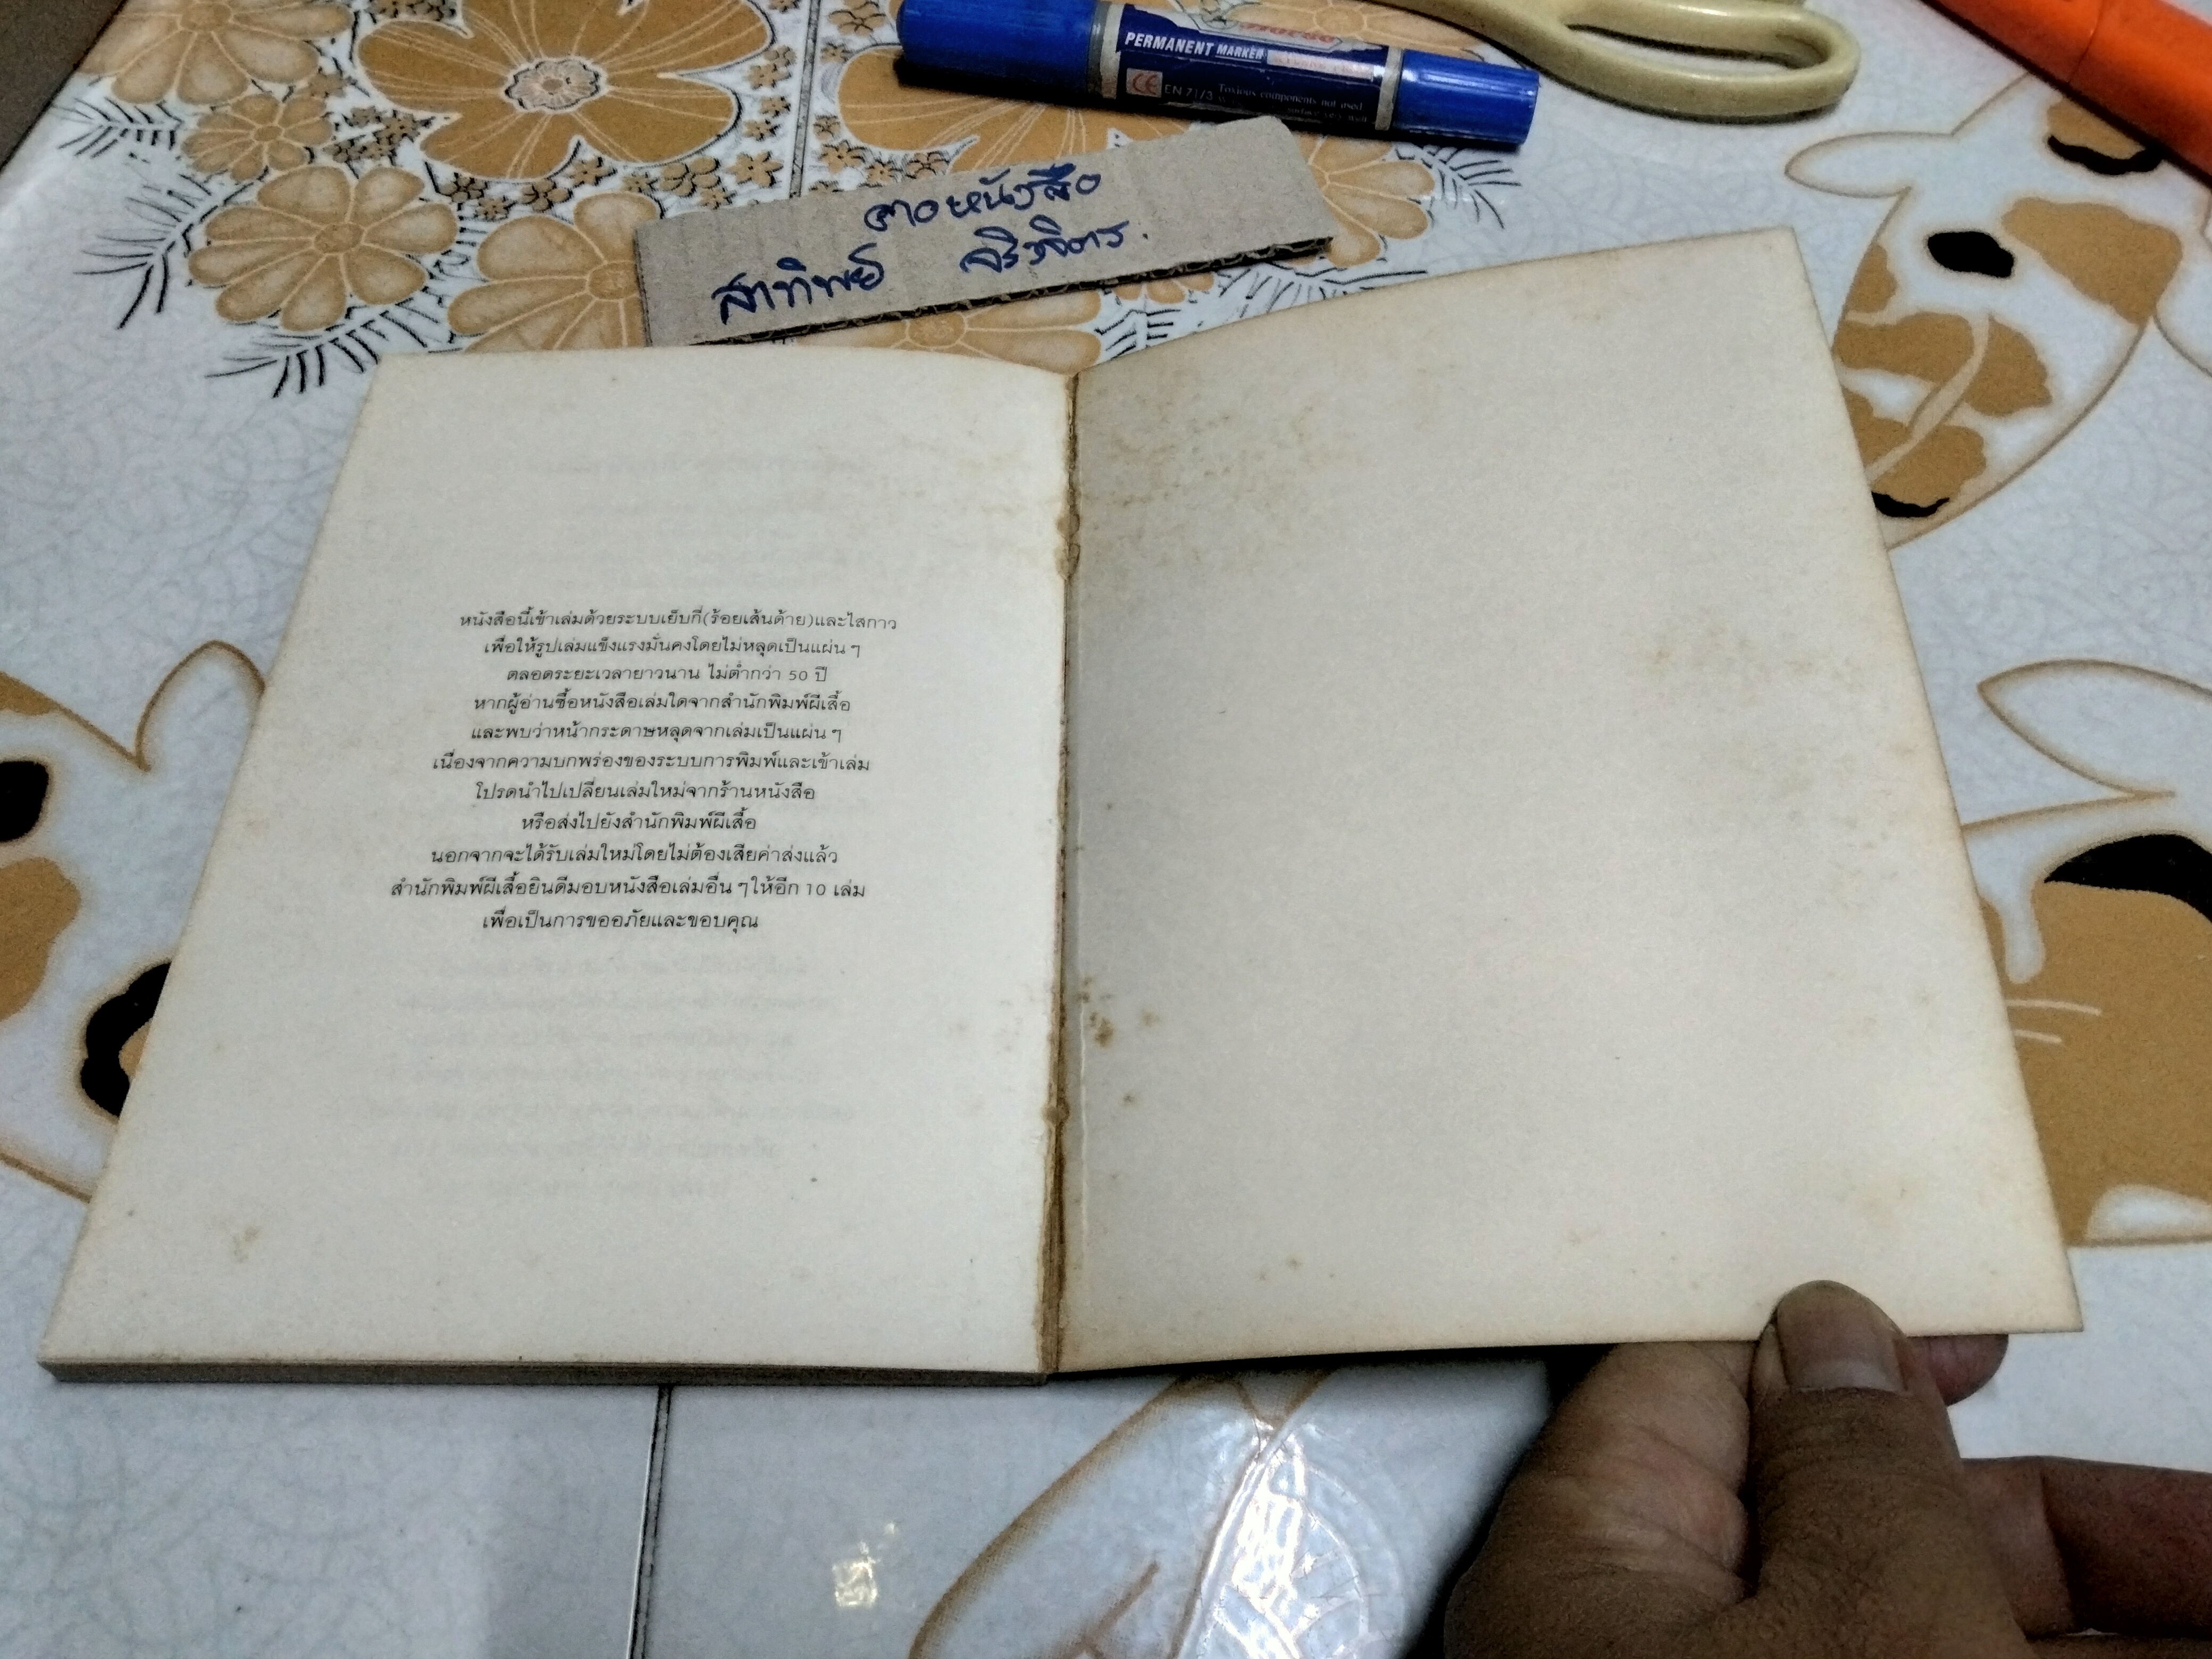 PERMANENT MARKER
CE EN 71/3 Toxious components not used
หนังสือ
สาทิพย์
หนังสือนี้เข้าเล่มด้วยระบบเย็บกี่(ร้อยเส้นด้าย)และไสกาว
เพื่อให้รูปเล่มแข็งแรงมั่นคงโดยไม่หลุดเป็นแผ่น ๆ
ตลอดระยะเวลายาวนาน ไม่ต่ำกว่า 50 ปี
หากผู้อ่านซื้อหนังสือเล่มใดจากสำนักพิมพ์ผีเสื้อ
และพบว่าหน้ากระดาษหลุดจากเล่มเป็นแผ่น ๆ
เนื่องจากความบกพร่องของระบบการพิมพ์และเข้าเล่ม
โปรดนำไปเปลี่ยนเล่มใหม่จากร้านหนังสือ
หรือส่งไปยังสำนักพิมพ์ผีเสื้อ
นอกจากจะได้รับเล่มใหม่โดยไม่ต้องเสียค่าส่งแล้ว
สำนักพิมพ์ผีเสื้อยินดีมอบหนังสือเล่มอื่น ๆ ให้อีก 10 เล่ม
เพื่อเป็นการขออภัยและขอบคุณ